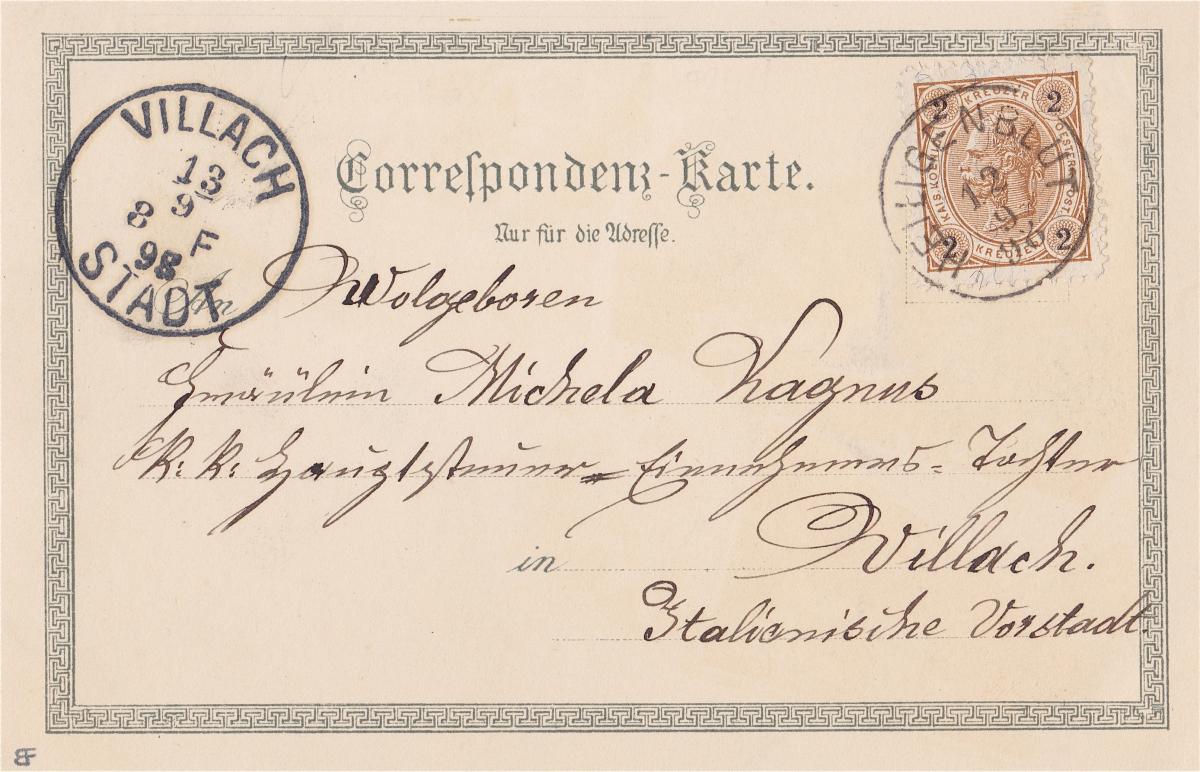 VILLACH
13
9
8 F
98
STADT
Correspondenz-Karte.
Nur für die Adresse.
KAIS. KÖNIGL. OESTERR. POST
KREUZER
2 2
2 2
KREUZER
HEILIGENBLUT
12
9
98
An
Wolgeboren
Fräulein Michela Kagnus
k: k: Hauptsteuer=Einnehmers-Tochter
in Villach.
Italienische Vorstadt.
BF